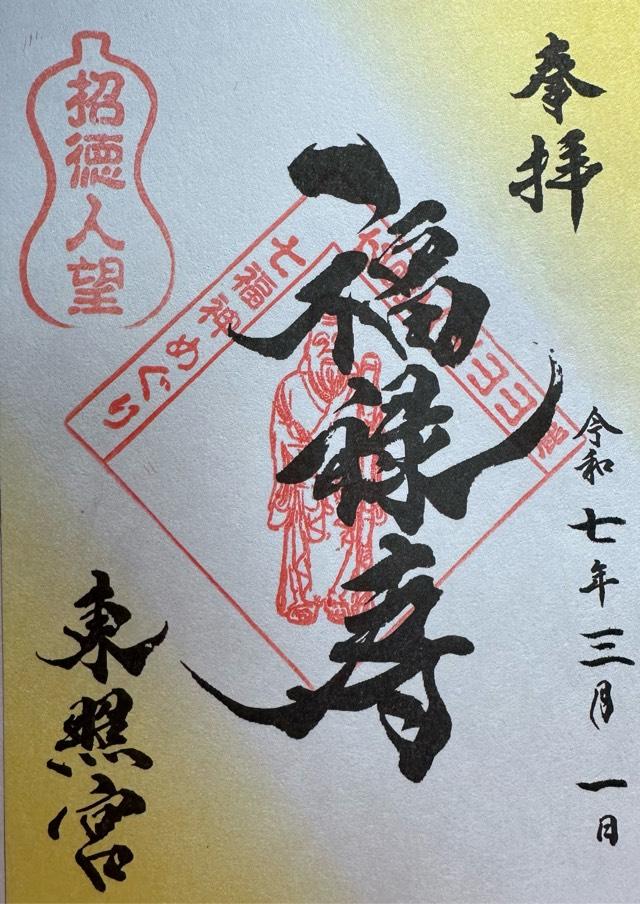 奉拝
令和七年三月一日
福禄寿
七福神めぐり
招徳人望
東照宮